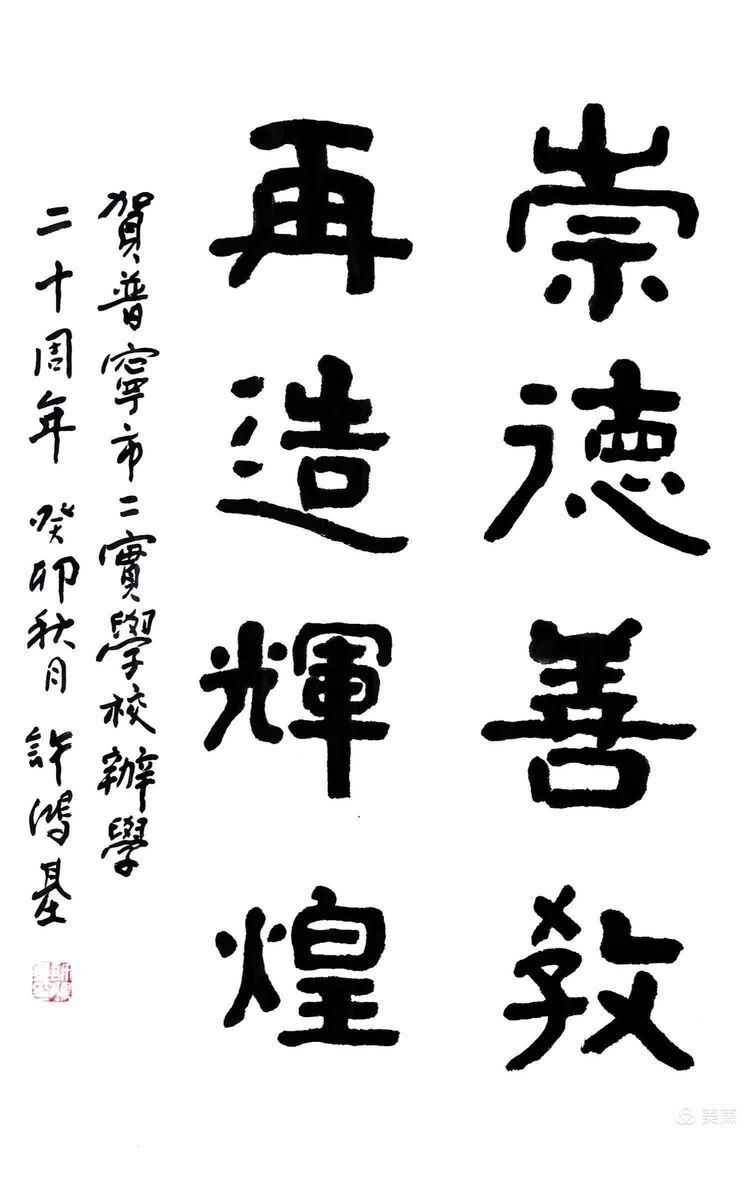 崇德善教
再造輝煌
賀普寧市二實學校辦學
二十周年 癸卯秋月 許鴻基
美篇